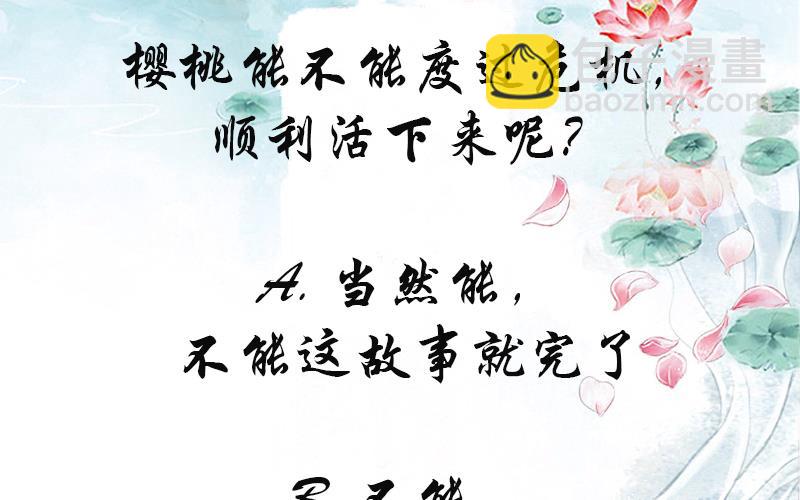 樱桃能不能度过危机，
包子漫畫
baozimh.com
顺利活下来呢？
A. 当然能，
不能这故事就完了
B.不能